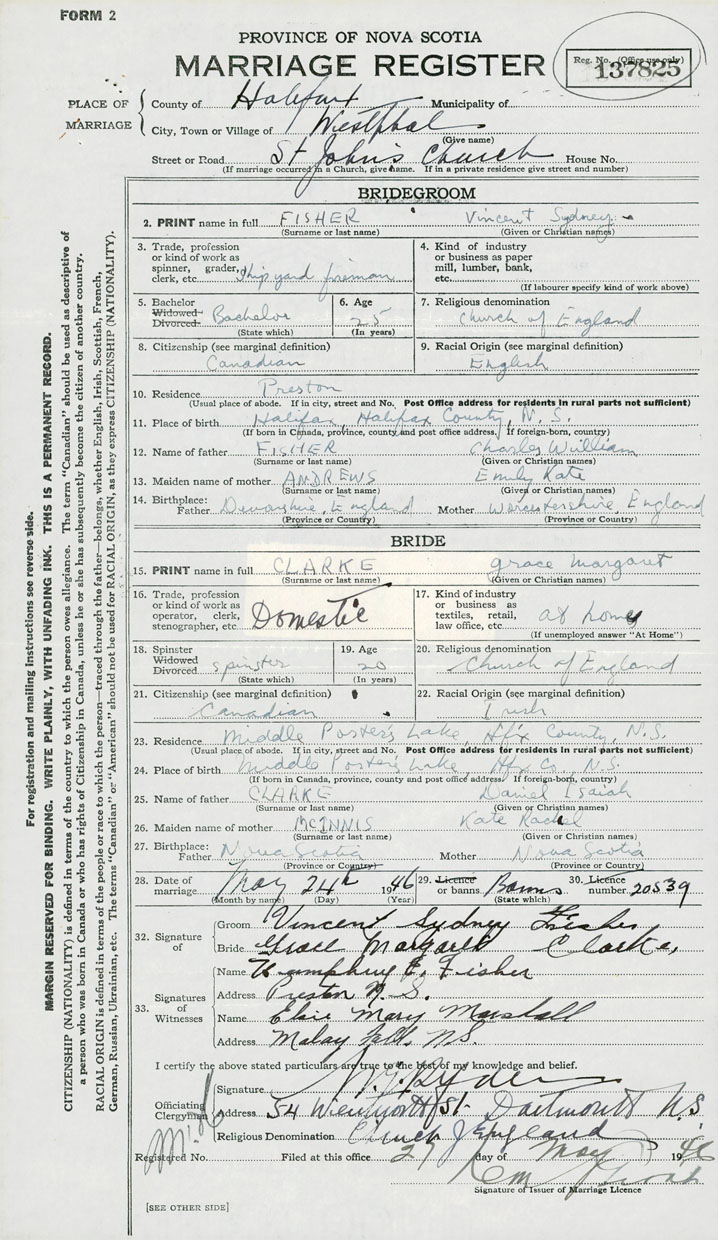 FORM 2
PROVINCE OF NOVA SCOTIA
MARRIAGE REGISTER
Reg. No. (Office use only)
137825
PLACE OF MARRIAGE
County of Halifax Municipality of
City, Town or Village of Westphal
(Give name)
Street or Road St John's Church House No.
(If marriage occurred in a Church, give name. If in a private residence give street and number)
BRIDEGROOM
2. PRINT name in full FISHER Vincent Sydney
(Surname or last name) (Given or Christian names)
3. Trade, profession or kind of work as spinner, grader, clerk, etc. Shipyard fireman
4. Kind of industry or business as paper mill, lumber, bank, etc.
(If labourer specify kind of work above)
5. Bachelor Widowed Divorced Bachelor
(State which)
6. Age 25
(In years)
7. Religious denomination
Church of England
8. Citizenship (see marginal definition)
Canadian
9. Racial Origin (see marginal definition)
English
10. Residence Preston
(Usual place of abode. If in city, street and No. Post Office address for residents in rural parts not sufficient)
11. Place of birth Halifax, Halifax County, N.S.
(If born in Canada, province, county and post office address. If foreign-born, country)
12. Name of father FISHER Charles William
(Surname or last name) (Given or Christian names)
13. Maiden name of mother ANDREWS Emily Kate
(Surname or last name) (Given or Christian names)
14. Birthplace: Father Devonshire, England Mother Worcestershire, England
(Province or Country) (Province or Country)
BRIDE
15. PRINT name in full CLARKE Grace Margaret
(Surname or last name) (Given or Christian names)
16. Trade, profession or kind of work as operator, clerk, stenographer, etc. Domestic
17. Kind of industry or business as textiles, retail, law office, etc. at home
(If unemployed answer "At Home")
18. Spinster Widowed Divorced Spinster
(State which)
19. Age 20
(In years)
20. Religious denomination
Church of England
21. Citizenship (see marginal definition)
Canadian
22. Racial Origin (see marginal definition)
Irish
23. Residence Middle Porter's Lake, Hfx County, N.S.
(Usual place of abode. If in city, street and No. Post Office address for residents in rural parts not sufficient)
24. Place of birth Middle Porter's Lake, Hfx Co., N.S.
(If born in Canada, province, county and post office address. If foreign-born, country)
25. Name of father CLARKE Daniel Isaiah
(Surname or last name) (Given or Christian names)
26. Maiden name of mother MCINNIS Kate Rachel
(Surname or last name) (Given or Christian names)
27. Birthplace: Father Nova Scotia Mother Nova Scotia
(Province or Country) (Province or Country)
28. Date of marriage May 24th 1946 29. Licence or banns. Banns 30. Licence number. 20539
(Month by name) (Day) (Year) (State which)
32. Signature of
Groom Vincent Sydney Fisher
Bride Grace Margaret Clarke
33. Signatures of Witnesses
Name Humphrey E. Fisher
Address Preston N.S.
Name Elsie Mary Marshall
Address Malay Falls, N.S.
I certify the above stated particulars are true to the best of my knowledge and belief.
Officiating Clergyman
Signature Ryder
Address 54 Wentworth St. Dartmouth N.S.
Religious Denomination Church of England
Registered No. Filed at this office 27 day of May 1946
Signature of Issuer of Marriage Licence
[SEE OTHER SIDE]
For registration and mailing instructions see reverse side.
MARGIN RESERVED FOR BINDING. WRITE PLAINLY, WITH UNFADING INK. THIS IS A PERMANENT RECORD.
CITIZENSHIP (NATIONALITY) is defined in terms of the country to which the person owes allegiance. The term "Canadian" should be used as descriptive of
a person who was born in Canada or who has rights of Citizenship in Canada, unless he or she has subsequently become the citizen of another country.
RACIAL ORIGIN is defined in terms of the people or race to which the person—traced through the father—belongs, whether English, Irish, Scottish, French,
German, Russian, Ukrainian, etc. The terms "Canadian" or "American" should not be used for RACIAL ORIGIN, as they express CITIZENSHIP (NATIONALITY).